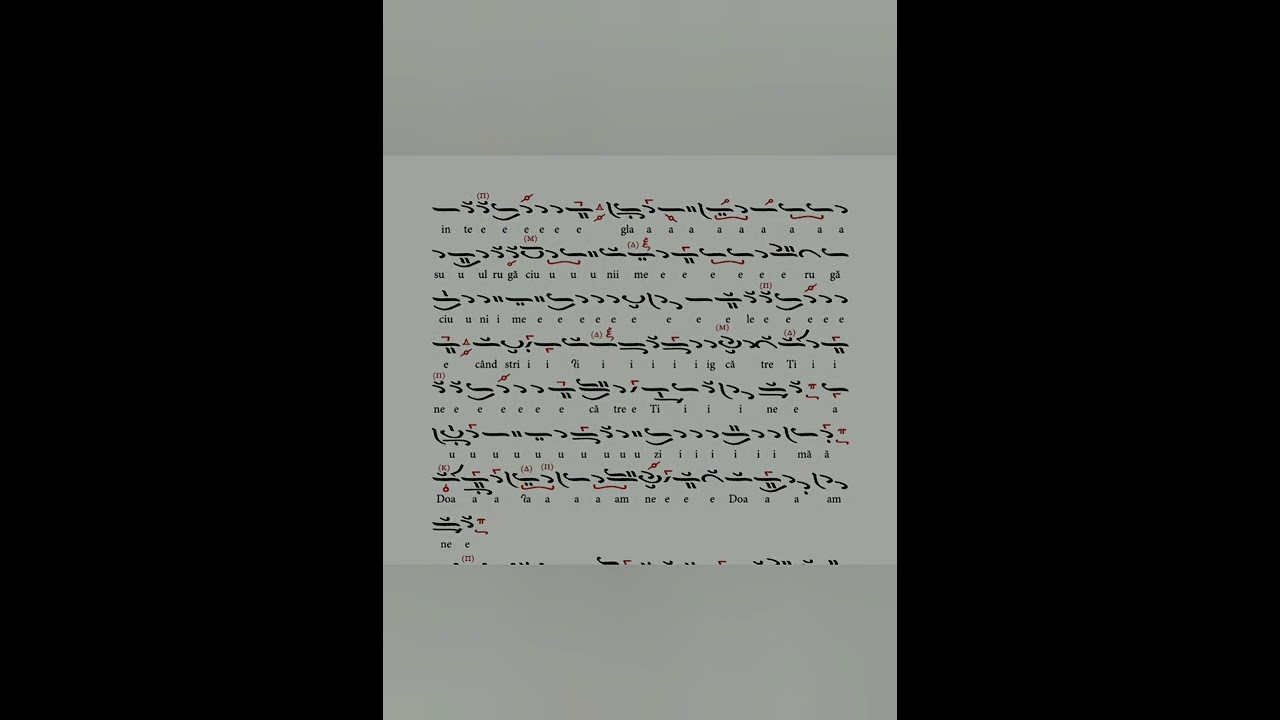 in te e e e e e e gla a a a a a a a a a
su u ul ru gă ciu u u u nii me e e e e e e ru gă
ciu u ni i me e e e e e e e e e le e e e e e
e când stri i i ʔi i i i i i ig că tre Ti i i
ne e e e e e e că tre e Ti i i i ne e a
u u u u u u u u u u zi i i i i i mă ă
Doa a a ʔa a a a am ne e e e Doa a a am
ne e